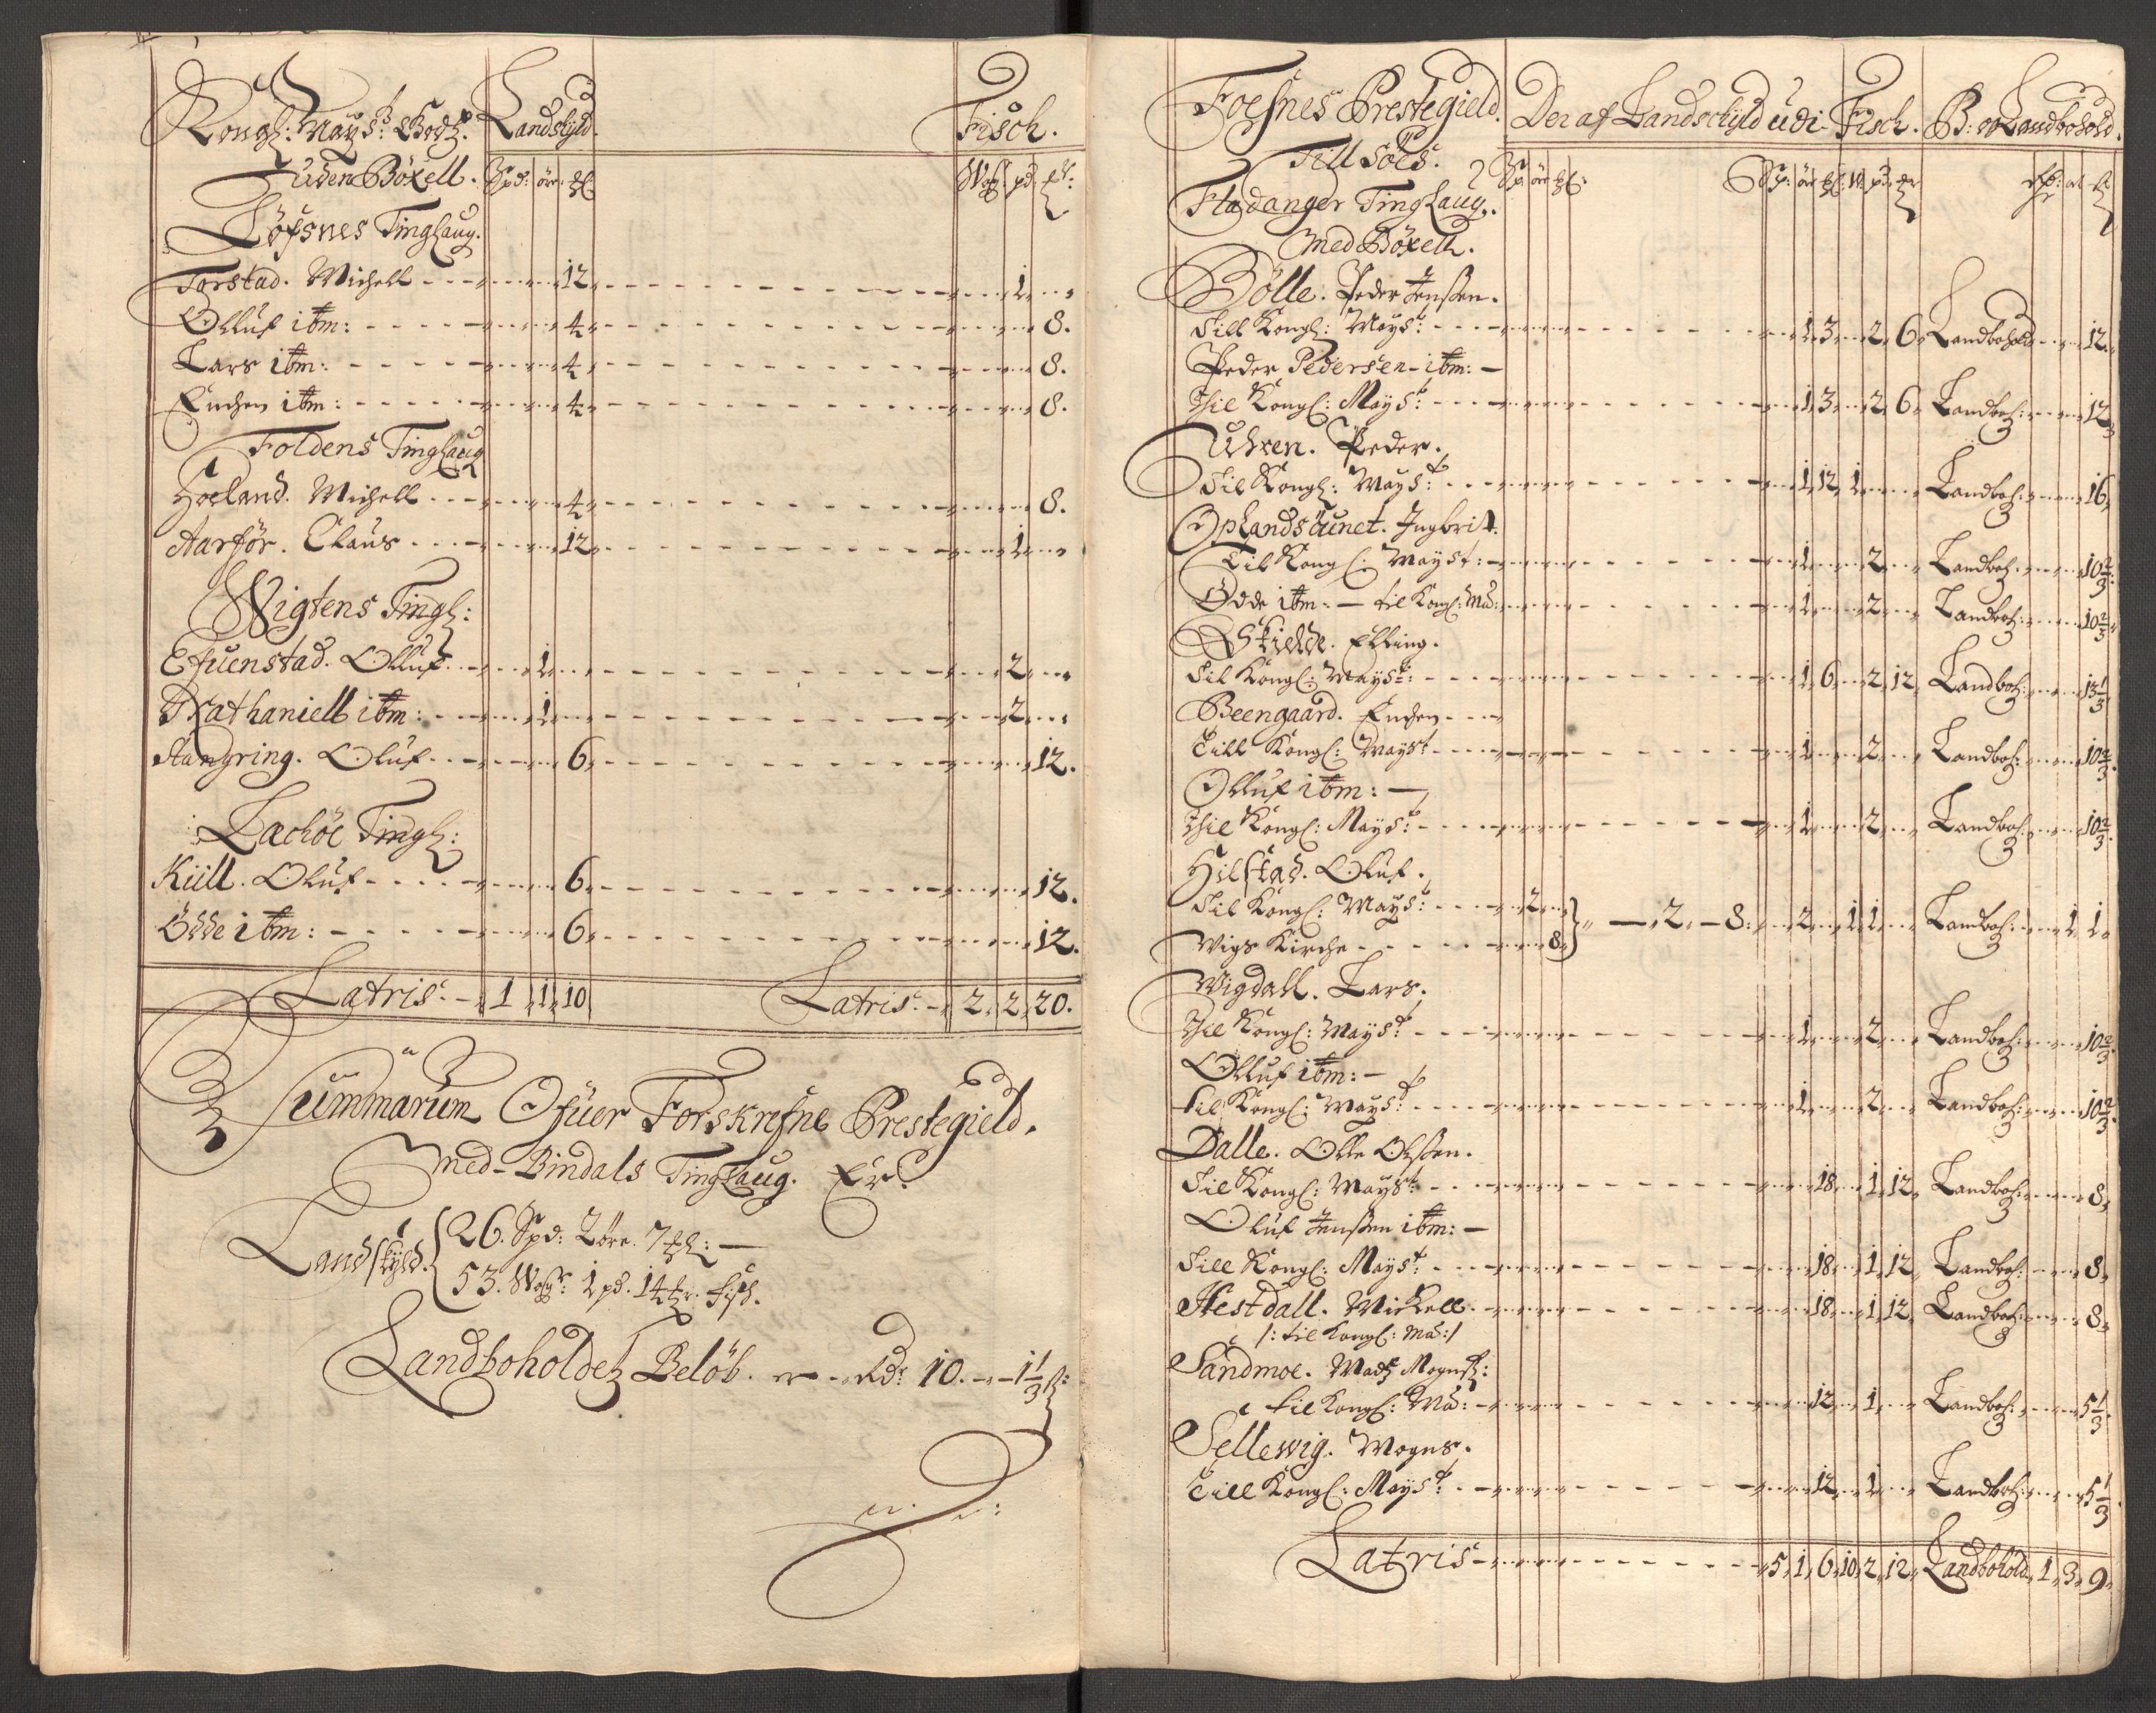 Kongl: Mayst: Godtz. Landskyld. Fisch.
uden Böxell. Spd: öre. Wog pd
Löfsnes Tinghaug.
Torstad. Michell - - - 12 - - - 1
Olluf itm: - - - 4 - - - 8.
Lars itm: - - - 4 - - - 8.
Enchen itm: - - - 4 - - - 8.
Foldens Tinghaug
Hoeland. Michell - - - 4 - - - 8.
Aarför. Claus - - - 12 - - - 1
Wigtens Tingh:
Efuenstad. Olluf. - - - 1 - - - 2
Nathaniell itm: - - - 1 - - - 2
Oluf - - - 6 - - - 12.
Lachöe Tingh:
Kiill. Oluf - - - 6 - - - 12.
Odde itm: - - - 6 - - - 12.
Latris - 1 1 10 Latris - 2 2 20.
Summarum Ofuer Forskrefne Prestegield.
Med Bindals Tinghaug. Er.
Landskyld. 26. Spd: 2 öre. 7
53. Wogr: 1 pd. 14 fisch.
Landboholdet Belöb. er - Rdr 10. - - 1 1/3 s:
Foesnes Prestegield. Der af Landschyld udi Fisch. B: er Landbohold.
Till Söes. Sp: öre Sp: öre W. pd
Fladanger Tinghaug.
Med Böxell.
Bölle. Peder Jenssen.
Till Kongl: Mayst: - - - 1 3 2 6 Landbohold 12.
Peder Pedersen - itm: -
Thil Kongl: Mayst: - - - 1 3 2 6 Landboh: 12
Uhren. Peder.
Til Kongl: Mayst: - - - 1 12 1 Landboh: 16
Oplandsöunet. Ingbrit.
Til Kongl: Mayst: - - - 1 2 Landboh: 10 2/3
Odde itm: - til Kongl: Ma: - - - 1 2 Landboh: 10 2/3
Elling.
Til Kongl: Mayst: - - - 1 6 2 12 Landboh: 13 1/3
Beengaard. Enchen - - -
Till Kongl: Mayst - - - 1 2 Landboh: 10 2/3
Olluf itm: -
Thil Kongl: Mayst: - - - 1 2 Landboh: 10 2/3
Hilstad. Oluf.
Til Kongl: Mayst: - - - 2 } - 2 - 8: 2 1 1 Landboh: 1 1
Wigs Kirche - - - 8
Wigdall. Lars.
Thil Kongl: Mayst - - - 1 2 Landboh: 10 2/3
Olluf itm: -
til Kongl: Mayst: - - - 1 2 Landboh: 10 2/3
Dalle. Olle Olssen.
Til Kongl: Mayst: - - - 18 1 12 Landboh: 8
Oluf Jenssen itm: -
Till Kongl: Mayst. - - - 18 1 12 Landboh: 8
Hestdall. Mickell - - - 18 1 12 Landboh: 8
/: til Kongl: Ma: /
Sandmoe. Madtz Mogns:
til Kongl: Ma: - - - 12 1 Landboh: 5 1/3
Sellewig. Mogns.
Till Kongl: Mayst: - - - 12 1 Landboh: 5 1/3
Latris - - - 5 1 6 10 2 12 Landbohold 1 3 9